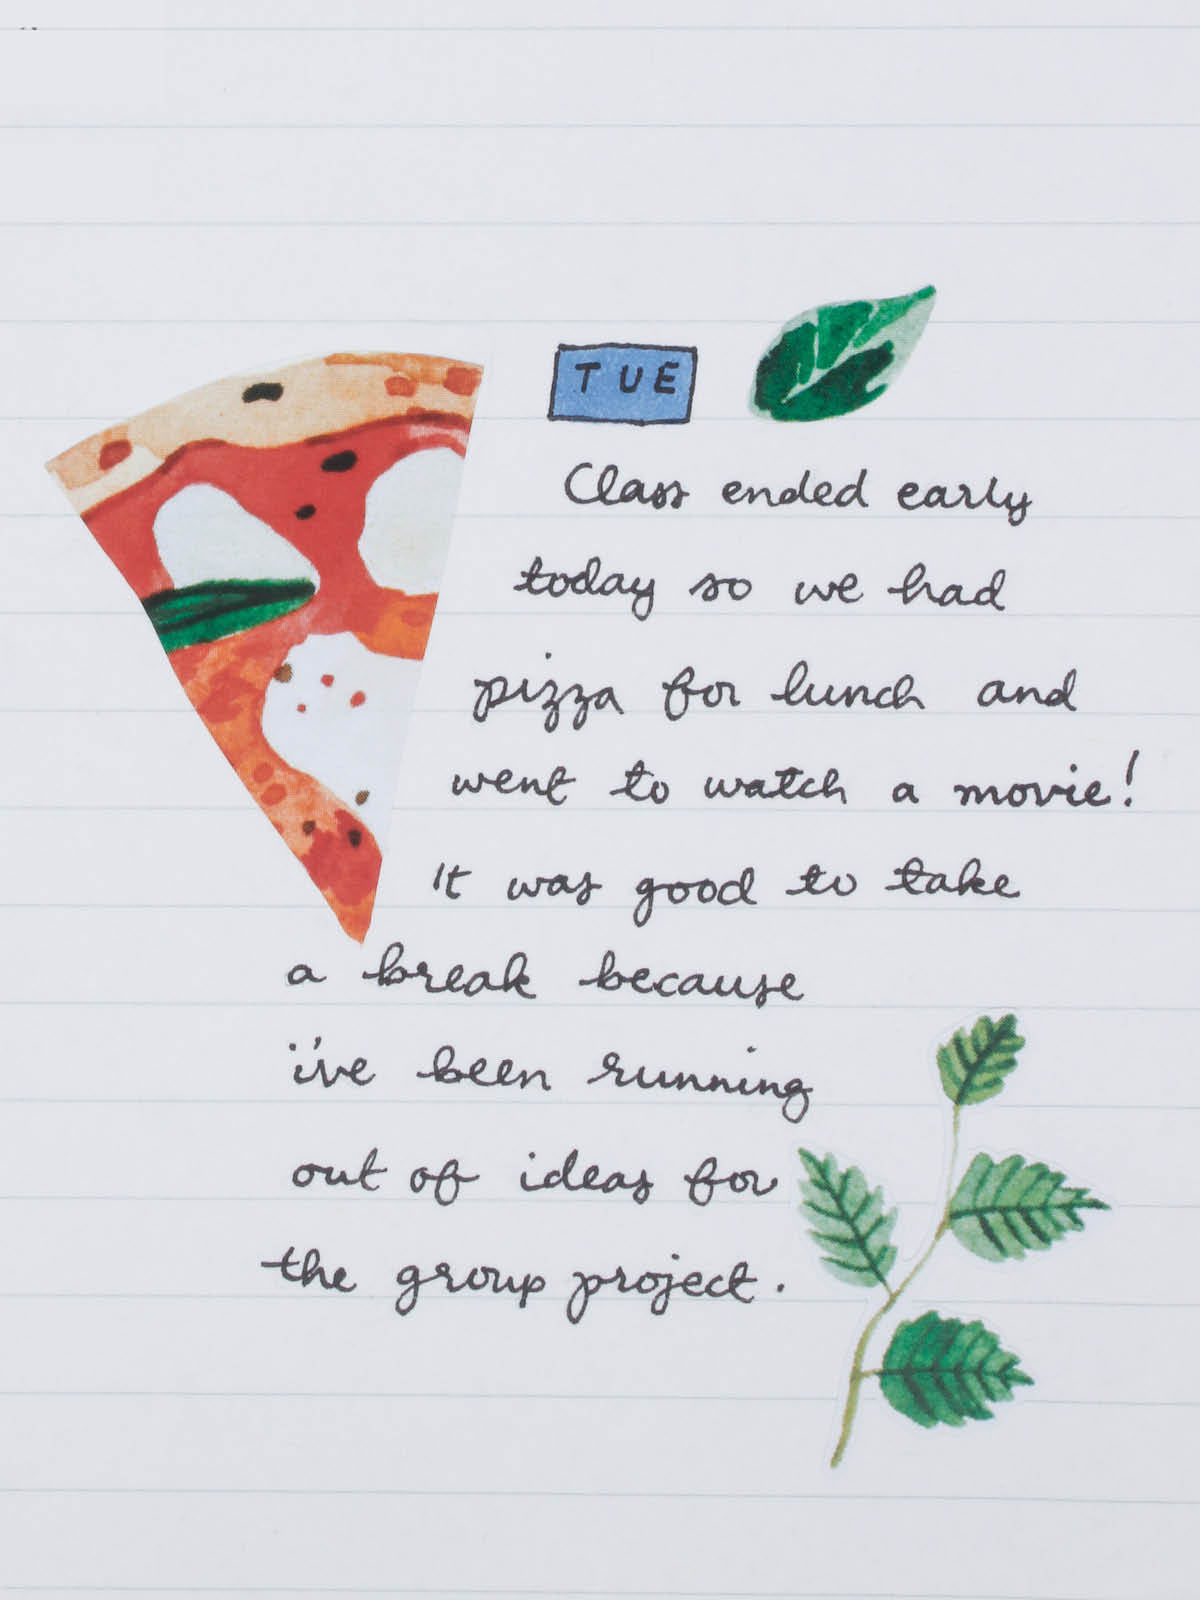 TUE
Class ended early
today so we had
pizza for lunch and
went to watch a movie!
It was good to take
a break because
i've been running
out of ideas for
the group project.